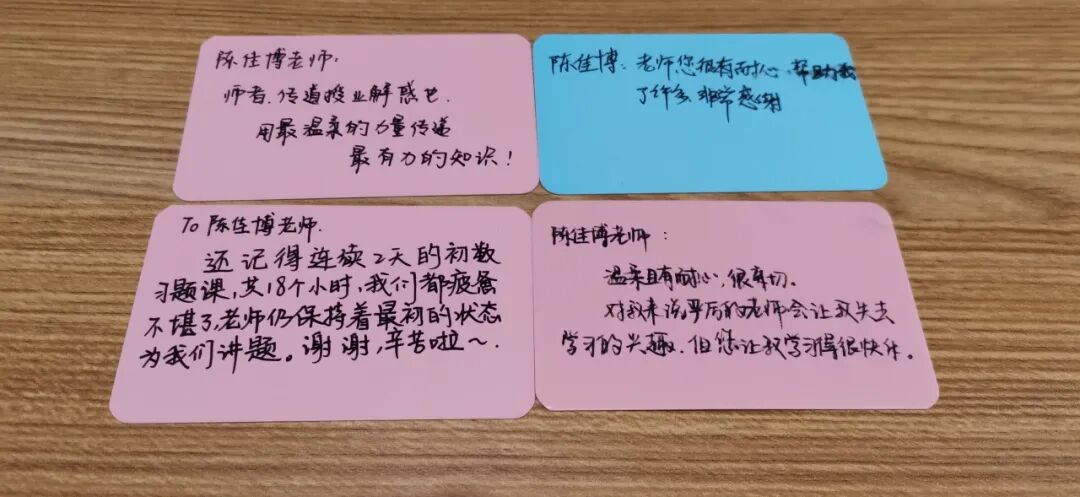 陈佳博老师:
师者,传道授业解惑也.
用最温柔的力量传递
最有力的知识!
陈佳博:老师您很有耐心,帮助我
了许多 非常感谢
To 陈佳博老师.
还记得连续2天的初数
习题课,共18个小时,我们都疲惫
不堪了,老师仍保持着最初的状态
为我们讲题。谢谢,辛苦啦~.
陈佳博老师:
温柔且有耐心,很亲切。
对我来说严厉的老师会让我失去
学习的兴趣.但您让我学习得很快乐。